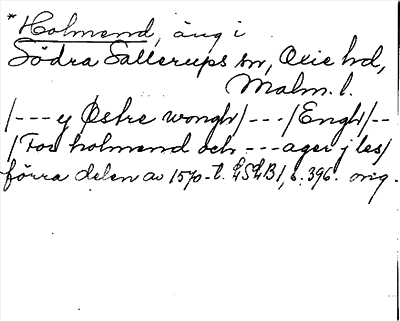 *Holmend, äng i
Södra Sallerups sn, Oxie hd,
Malm. l.
/--- y Østre wongh/---/Engh/--
/Fos holmend och ---ager j les/
förra delen av 1570-t. LSLB1, s. 396. orig.